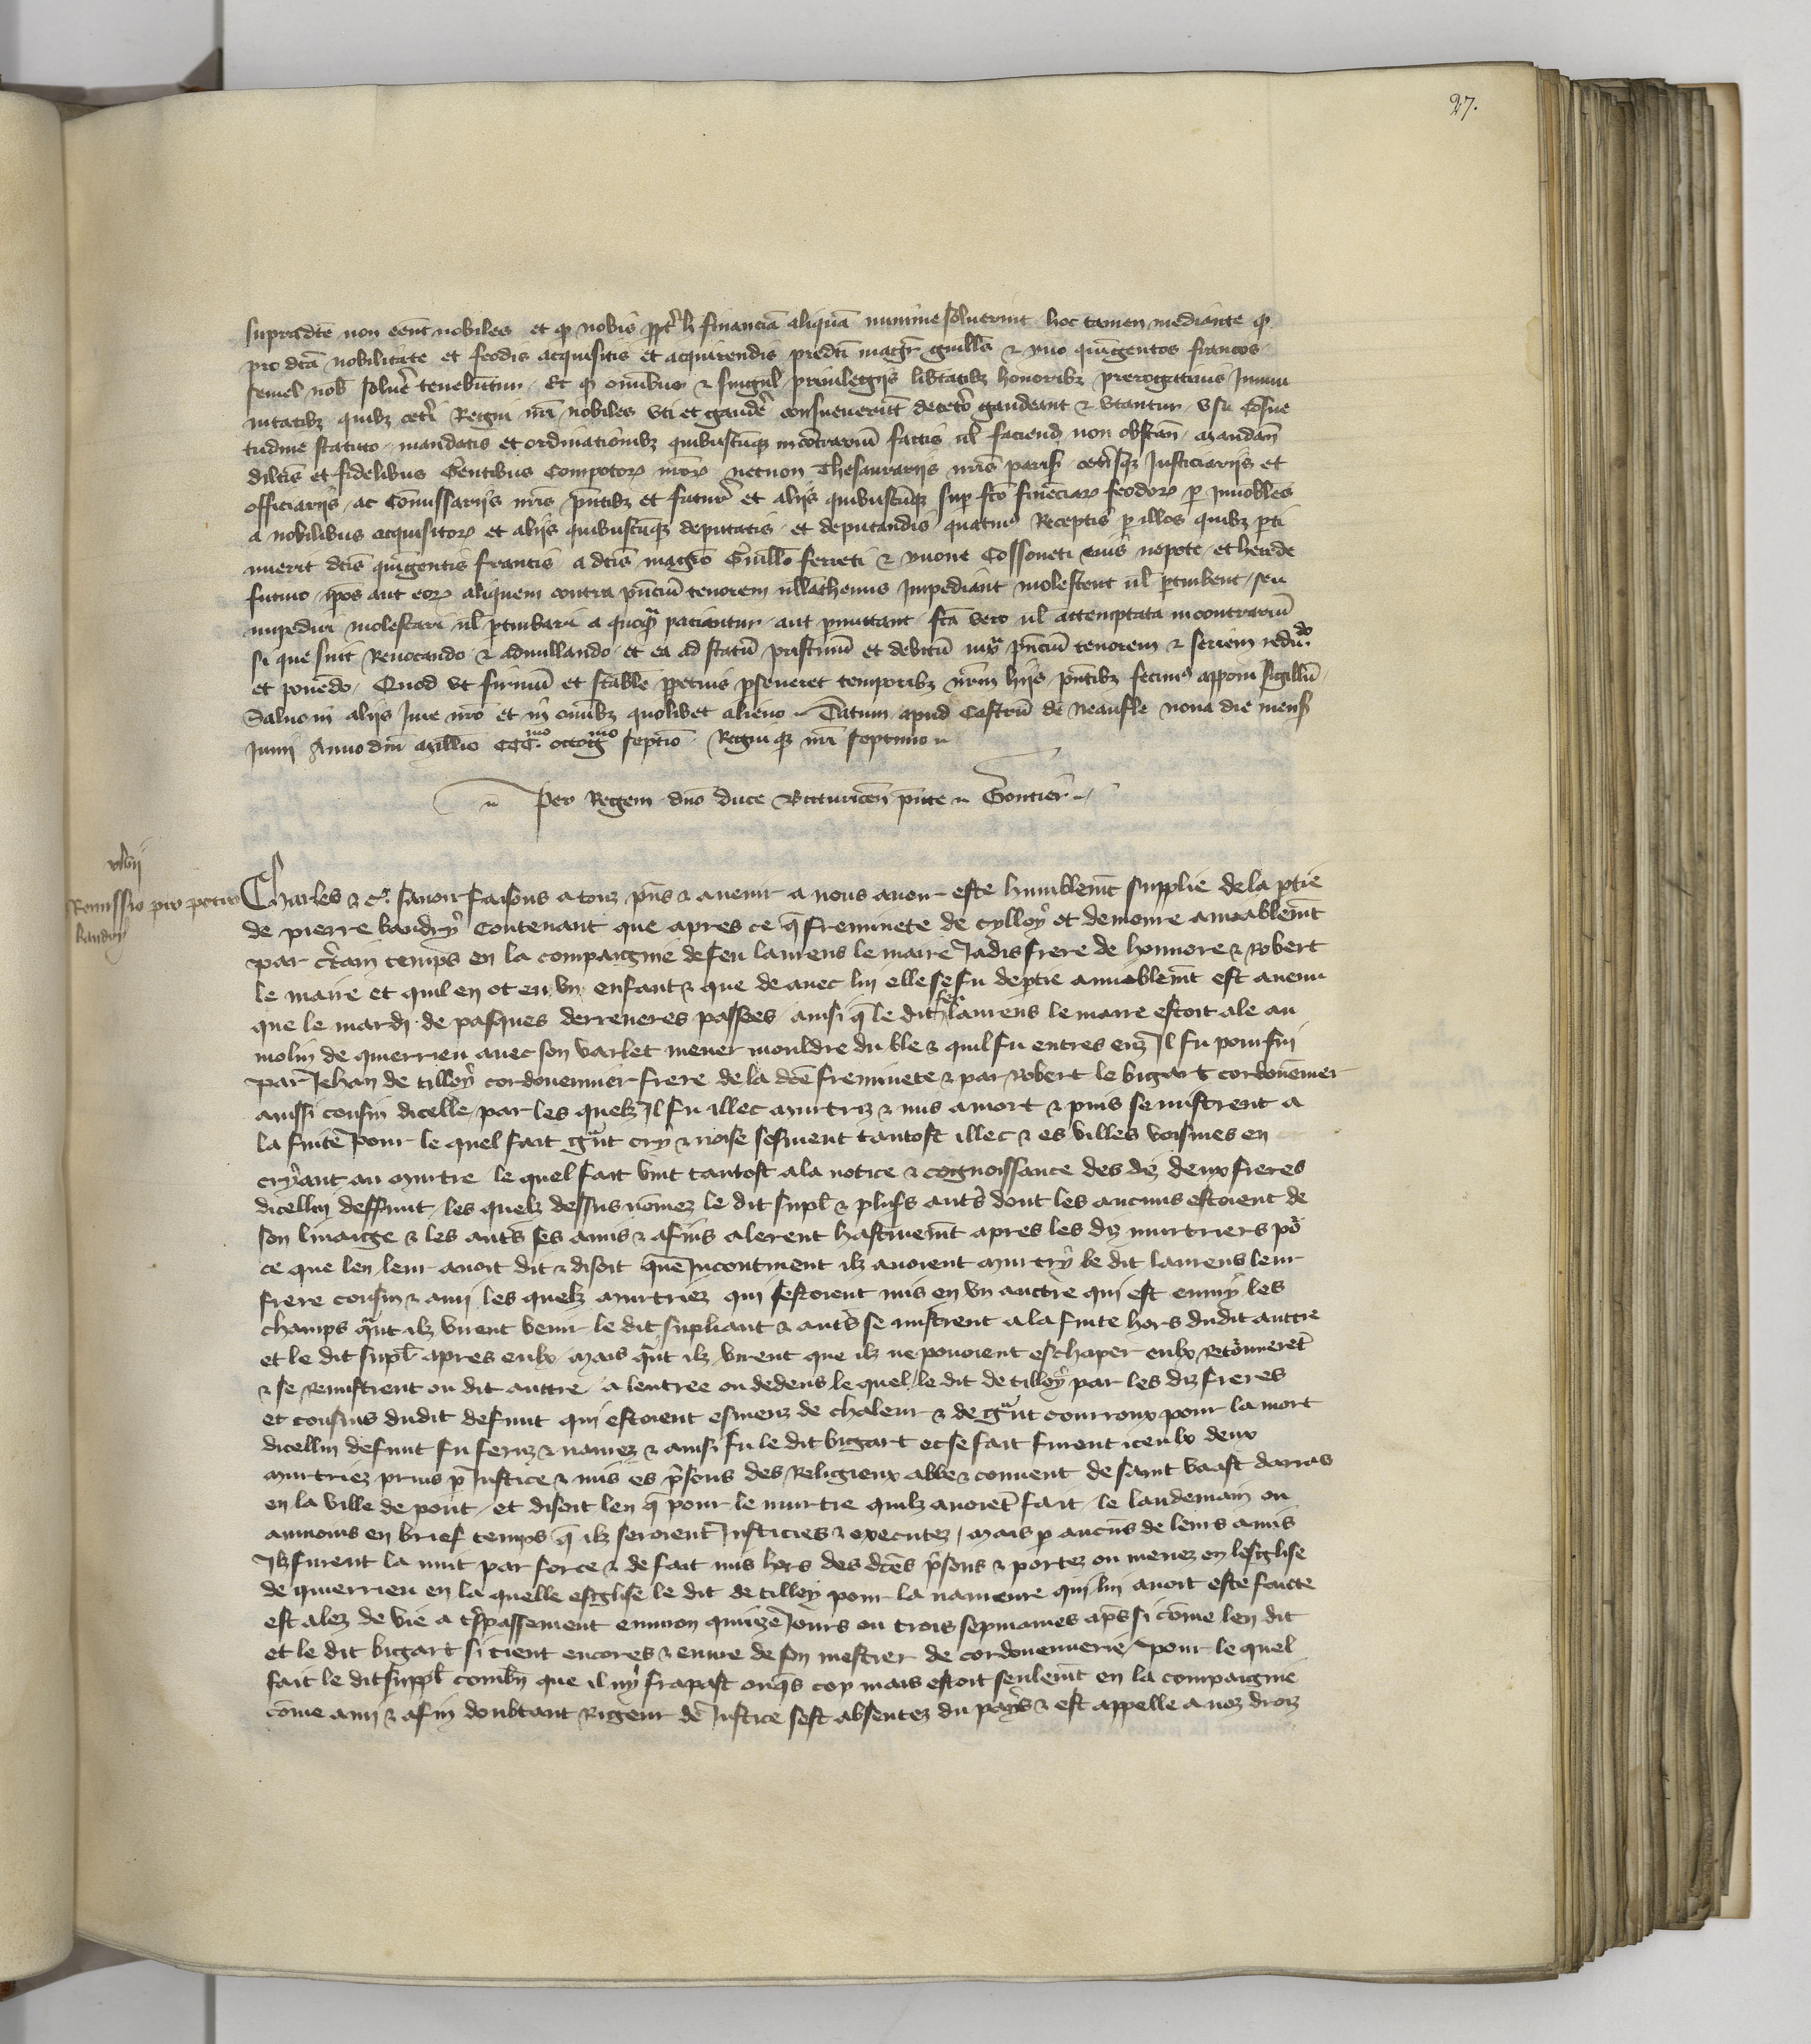 27.
supradcte non eent nobiles et q nobis ppt h financia aliqua minime soluerint hoc tamen mediante q
pro dcta nobilitate et feodis acquisitis et acquirendis predcti magr guills & yuo quigentos francos
semel nob soluere tenebutur. Et q omibus & singul priuilegijs libtatibz honoribz prerogatiuis Immu
nitatibz quibz ceteri Regni nri nobiles vti et gaudere consueuerut decetero gaudeant & vtantur. vsu Cosue
tudine statuto mandatis et ordinationibz quibuscuqz incotrariu factis ul faciend non obstan. Mandan
dilcis et fidelibus Gentibus Compotor nror necnon Thesaurarijs nris parisi ceterisqz Justiciarijs et
officiarijs ac Comissarijs nris pntibz et futur et alijs quibuscuqz sup fco finaciar feodor p Innobiles
a nobilibus acquisitor et alijs quibuscuqz deputatis et deputandis quatin Receptis p illos quibz pti
nuerit dcis quigentis francis a dcis magro Guillo ferreti & yuone Cossoneti eius nepote et herede
futuro ipos aut eor aliquem contra pnciu tenorem ullathenus Impediant molestent ul pturbent seu
impediri molestari ul pturbari a quoqm paciantur aut pmittant fca vero ul attemptata in contrariu
si que sint Reuocando & adnullando et ea ad statu pristinu et debitu iux pnciu tenorem & seriem reducdo
et ponedo. Quod vt firmu et stabile ppetuis pseueret temporibz nrm hijs pntibz fecim apponi sigillu
Saluo in alijs Jure nro et in omibz quolibet alieno. Datum apud Castru de neaufle nona die mens
Junij Anno dni Millio CCCmo octogmo septio. Regni qz nri septimo
Per Regem dno duce Bituricen pnte. Gontier
xlvij
Remissio pro petro
baudry
Charles & c. sauoir faisons a touz pns & auenir a nous auoir este humblemt supplie de la ptie
de pierre baudry Contenant que apres ce q freminete de tylloy ot demoure amiablemt
par certain temps en la compaignie de feu laurens le maire Jadis frere de honnore & Robert
le maire et quil en ot eu vn enfant & que de auec lui elle se fu deptie amiablemt est auenu
que le mardi de pasques derreneres passees ainsi q le dit feu laurens le maire estoit ale au
molin de querrieu auec son varlet mener mouldre du ble & quil fu entres enz Il fu poursui
par Jehan de tilloy cordouennier frere de la dcte freminete & par Robert le bigart cordouennier
aussi cousin dicelle par les quelz Il fu illec murtriz & mis a mort & puis se mistrent a
la fuite pour le quel fait grant cry & noise sesmeut tantost illec & es villes voisines en
cryant au murtre le quel fait vint tantost a la notice & cognoissance des diz deux freres
dicellui deffunt les quelz dessus nomez le dit supl & plus autres dont les aucuns estoient de
son linaige & les autres ses amis & afins alerent hastiuemt apres les diz murtriers por
ce que len leur auoit dit & disoit que Incontinent ilz auoient murtry le dit laurens leur
frere cousin & ami les quelz murtriez qui sestoient mis en vn auttre qui est enmy les
champs qant ilz virent venir le dit supliant & autres se mistrent a la fuite hors dudit auttre
et le dit supl apres eulx mais qant ilz virent que ilz ne pouoient eschaper eulx retournerent
& se remistrent ou dit auttre a lentree ou dedens le quel le dit de tilloy par les diz freres
et cousins dudit defunt qui estoient esmeuz de chaleur & de grant courroux pour la mort
dicellui defunt fu feruz & naurez & aussi fu le dit bigart et se fait furent iceulx deux
murtriez prins p Justice & mis es prisons des Religieux abbe & conuent de saint vaast darras
en la ville de pont et disoit len q pour le murtre quilz auoient fait le landemain ou
aumoins en brief temps q ilz seroient Justicies & executez mais p aucuns de leurs amis
Ilz furent la nuit par force & de fait mis hors des dctes prisons & portez ou menez en lesglise
de querrieu en la quelle esglise le dit de tilloy pour la naureure qui lui auoit este faicte
est alez de vie a trespassement enuiron quinze Jours ou trois sepmaines aps si come len dit
et le dit bigart si tient encores & euure de son mestier de cordouennerie pour le quel
fait le dit suppl combn que il ny frapast onqs cop mais estoit seulemt en la compaignie
come ami & afin doubtant Rigeur de Justice sest absentez du pays & est appelle a noz droiz